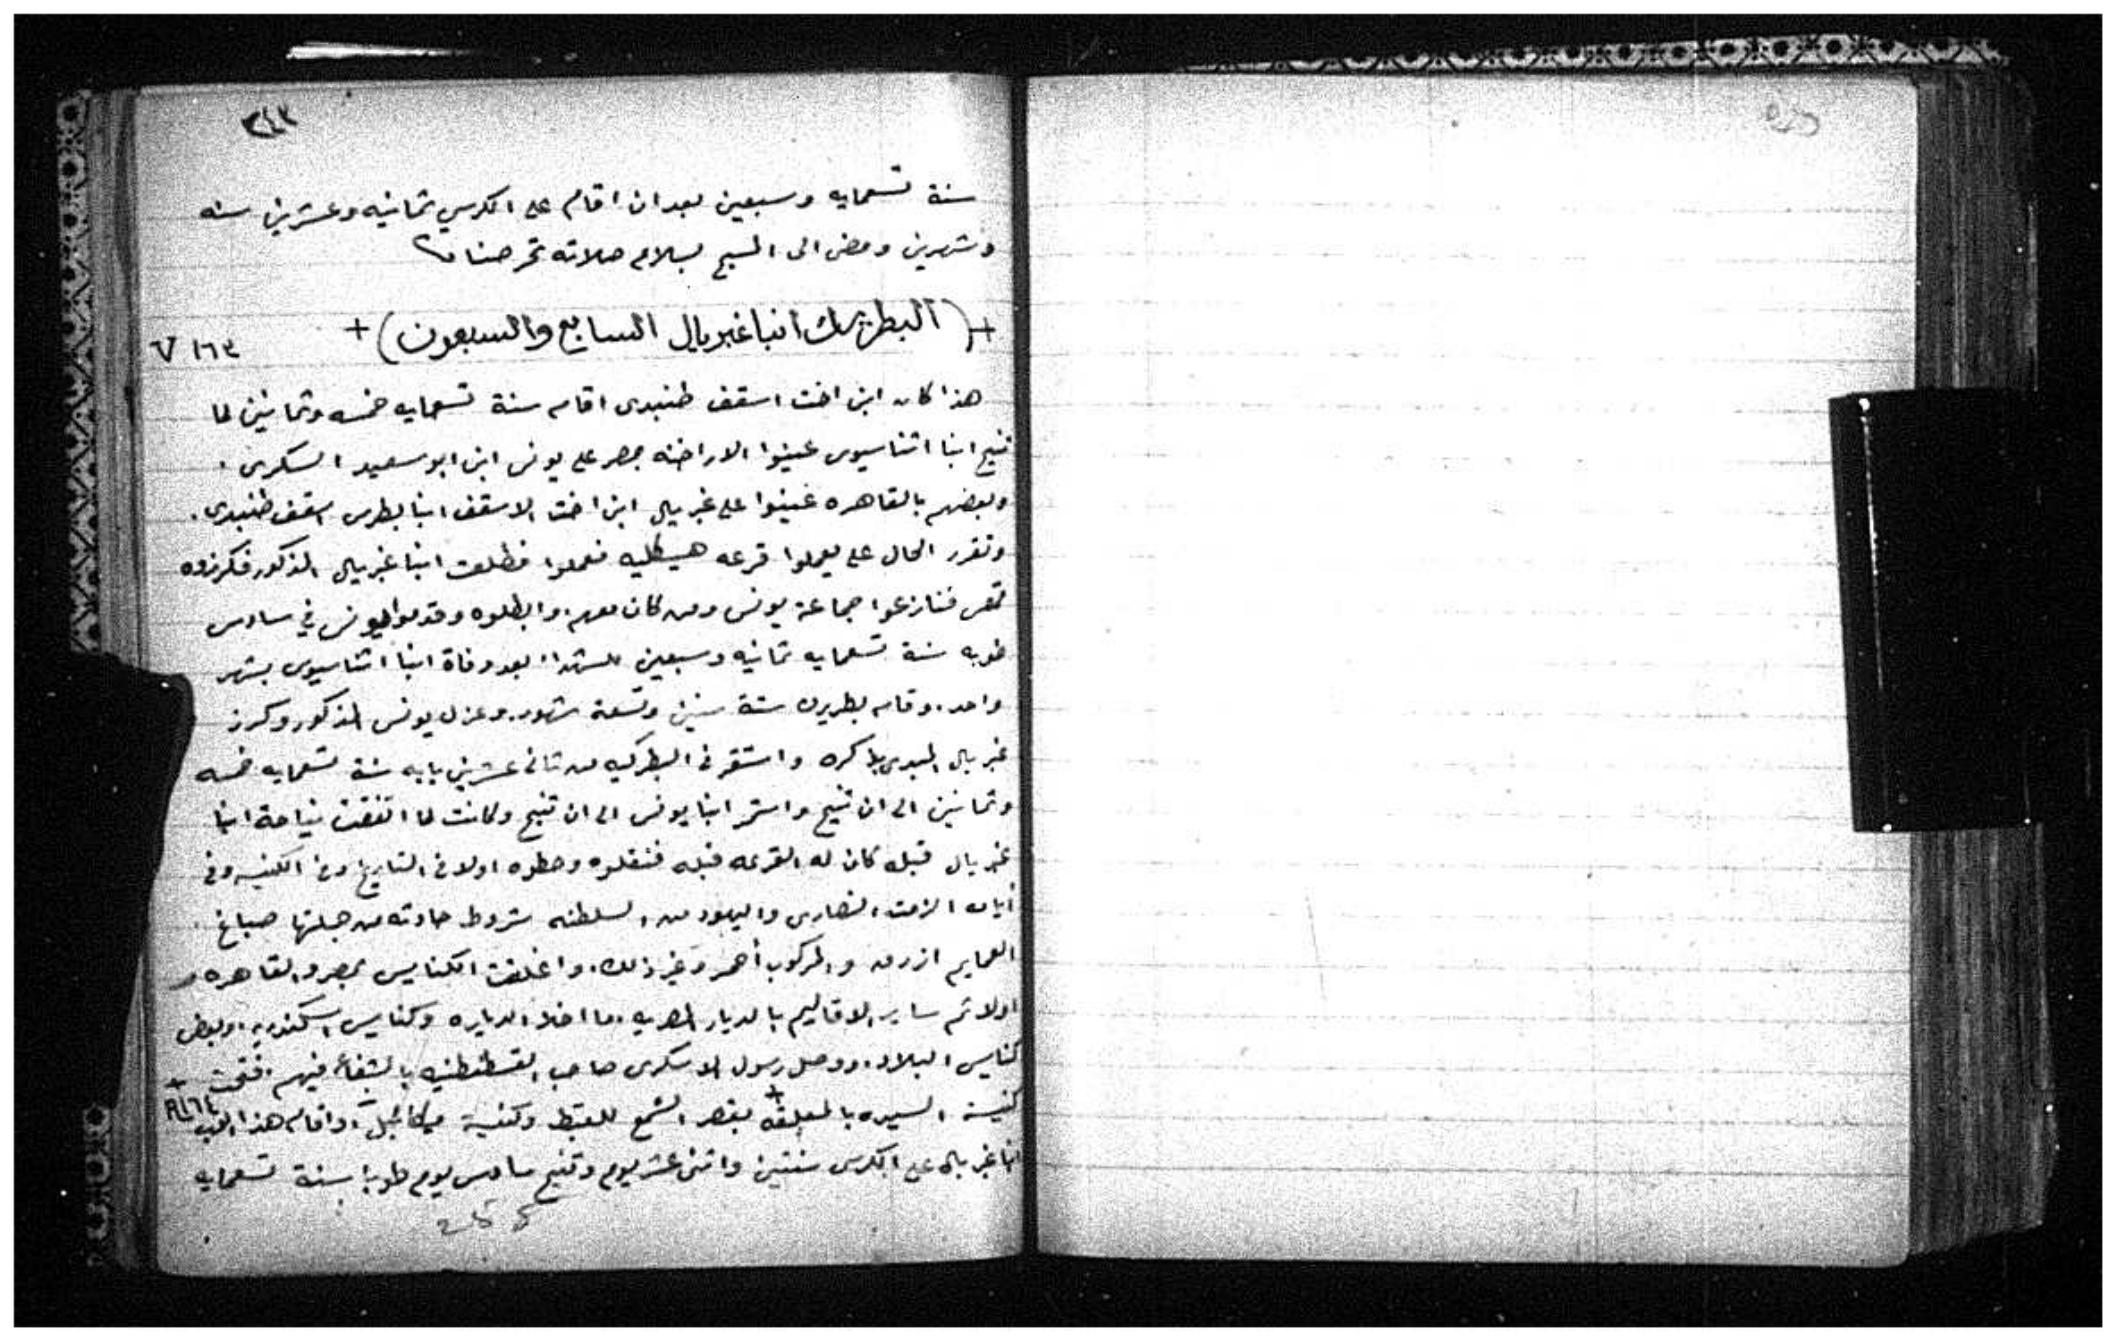 ٣٤٣
سنة تسعمايه وسبعين بعد ان اقام على الكرسي ثمانيه وعشرين سنه
وشهرين ومضى الى المسيح بسلام صلاته تحرصنا
+ (البطريرك انبا غبريال السابع والسبعون) +
١٦٣ V
هذا كان ابن اخت اسقف طنبدى اقام سنة تسعمايه خمسه وثمانين لما
تنيح انبا اثناسيوس عينوا الاراخنه بمصر على يونس ابن ابو سعيد السكرى.
وبعضهم بالقاهره عينوا على غبريال ابن اخت الاسقف انبا بطرس اسقف طنبدى.
وتقرر الحال على يعملوا قرعه هيكليه فعملوا فطلعت انبا غبريال المذكور فكرزوه
قمص فنازعوا جماعة يونس ومن كان معهم وابطلوه وقدموا ليونس في سادس
طوبه سنة تسعمايه ثمانيه وسبعين للشهدا بعد وفاة انبا اثناسيوس بشهر
واحد. وقام بطريرك ستة سنين وتسعة شهور. وعزل يونس المذكور وكرز
غبريال المبدى بذكره واستقر في البطركيه من ثانى عشرين بابه سنة تسعمايه خمسه
وثمانين الى ان تنيح واستمر انبا يونس الى ان تنيح وكانت لما اتفقت نياحة انبا
غبريال قبله كان له القرعه قبله فنقلوه وحطوه اولا في التاريخ وفي الكنيسه وفي
أيامه الزمت النصارى واليهود من السلطنه شروط حادثه من جملتها صباغ.
العمايم ازرق والمركوب أحمر وغير ذلك. واغلقت الكنايس بمصر والقاهره
اولا ثم ساير الاقاليم بالديار المصريه. ما خلا الدياره وكنايس اسكندريه وبعض
كنايس البلاد. ووصل رسول الاشكرى صاحب القسطنطنيه بالشفاعه فيهم. ففتحت
كنيسة السيده بالمعلقه بقصر الشمع للقبط وكنيسة ميكائيل واقام هذا الاب
+ R ١٦٤
انبا غبريال على الكرسى سنتين واثنى عشر يوم وتنيح سادس يوم طوبا سنة تسعمايه